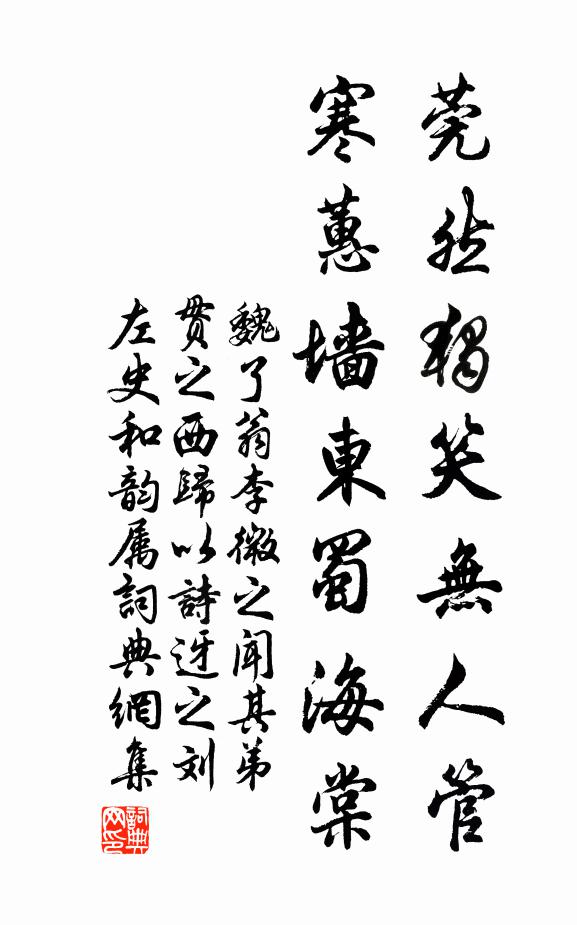 莞然獨笑無人管
寒蕙墙東蜀海棠
魏了翁李微之闻其弟
贯之西歸以詩迓之刘
左史和韵属詞典網集
詞典网印